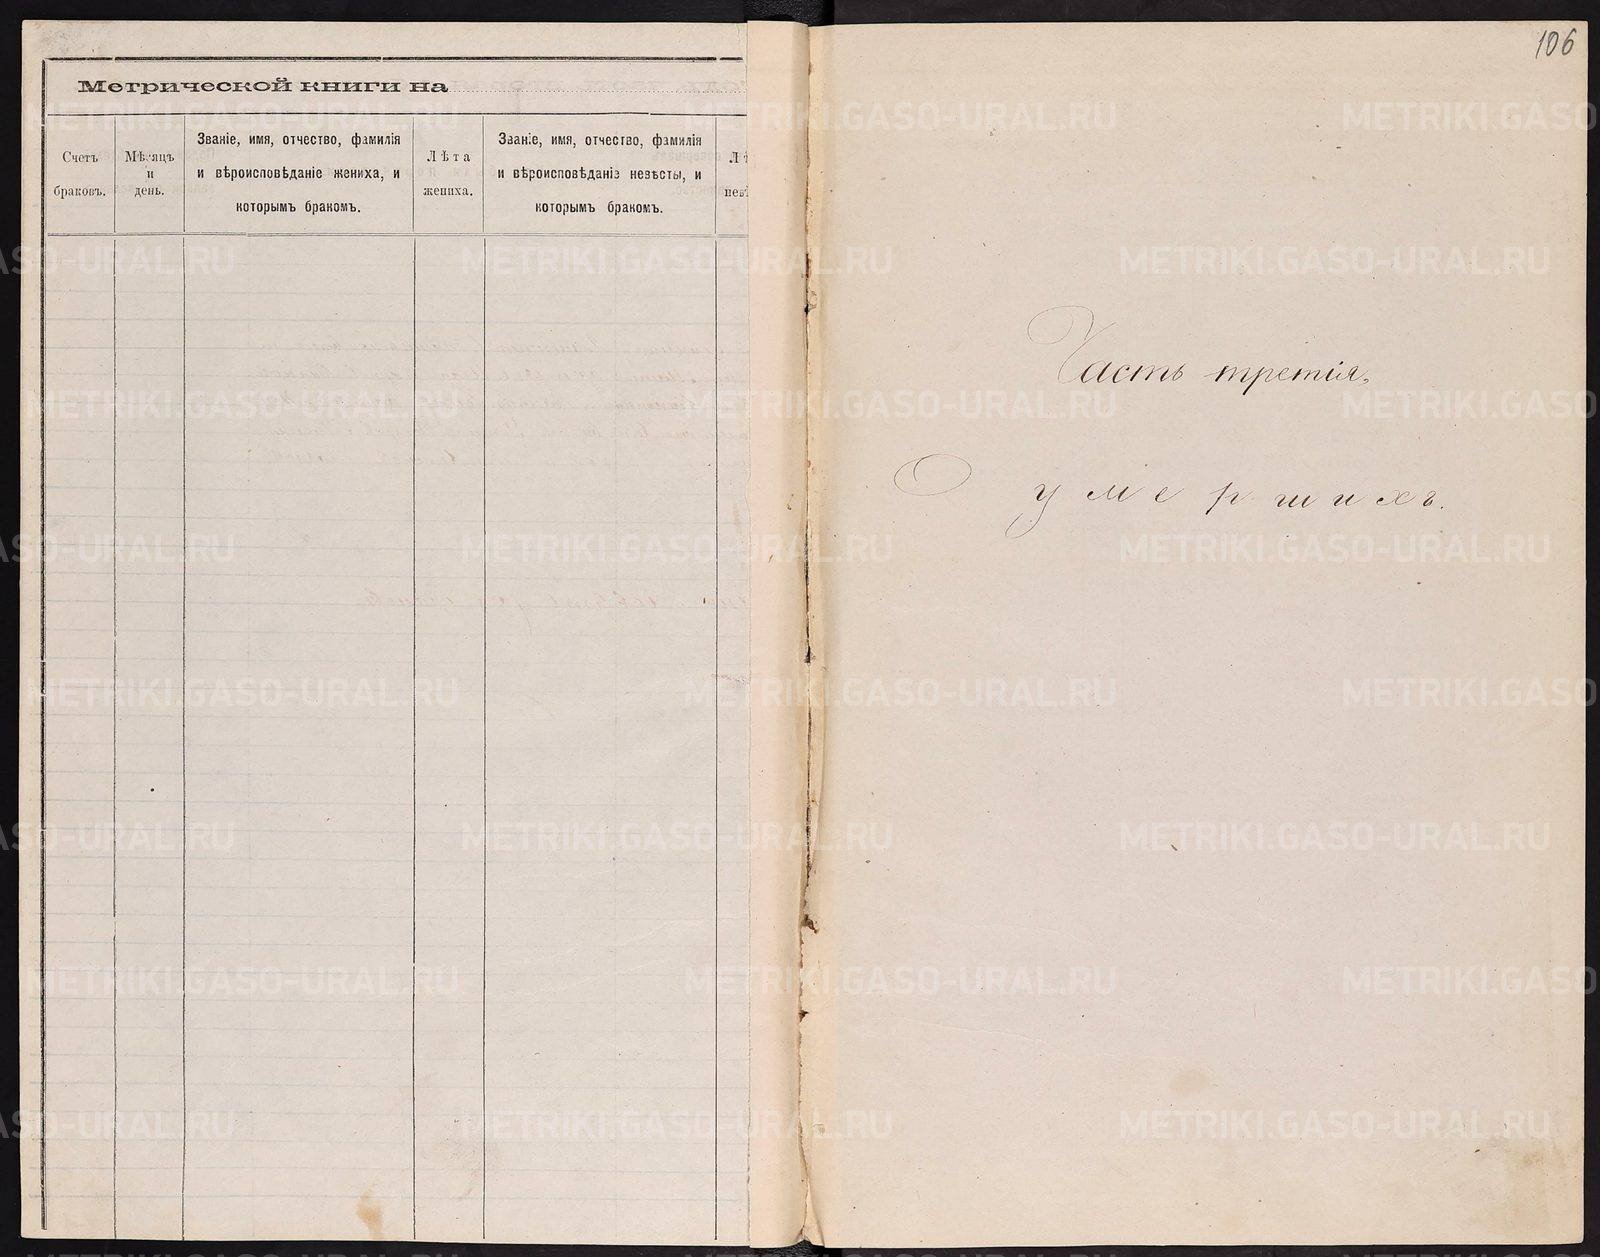 Метрической книги на
Счетъ
браковъ.
Мѣсяцъ
и
день.
Званіе, имя, отчество, фамилія
и вѣроисповѣданіе жениха, и
которымъ бракомъ.
Лѣта
жениха.
Званіе, имя, отчество, фамилія
и вѣроисповѣданіе невѣсты, и
которымъ бракомъ.
Лѣ
невѣ
106
Часть третія,
О умершихъ.
METRIKI.GASO-URAL.RU